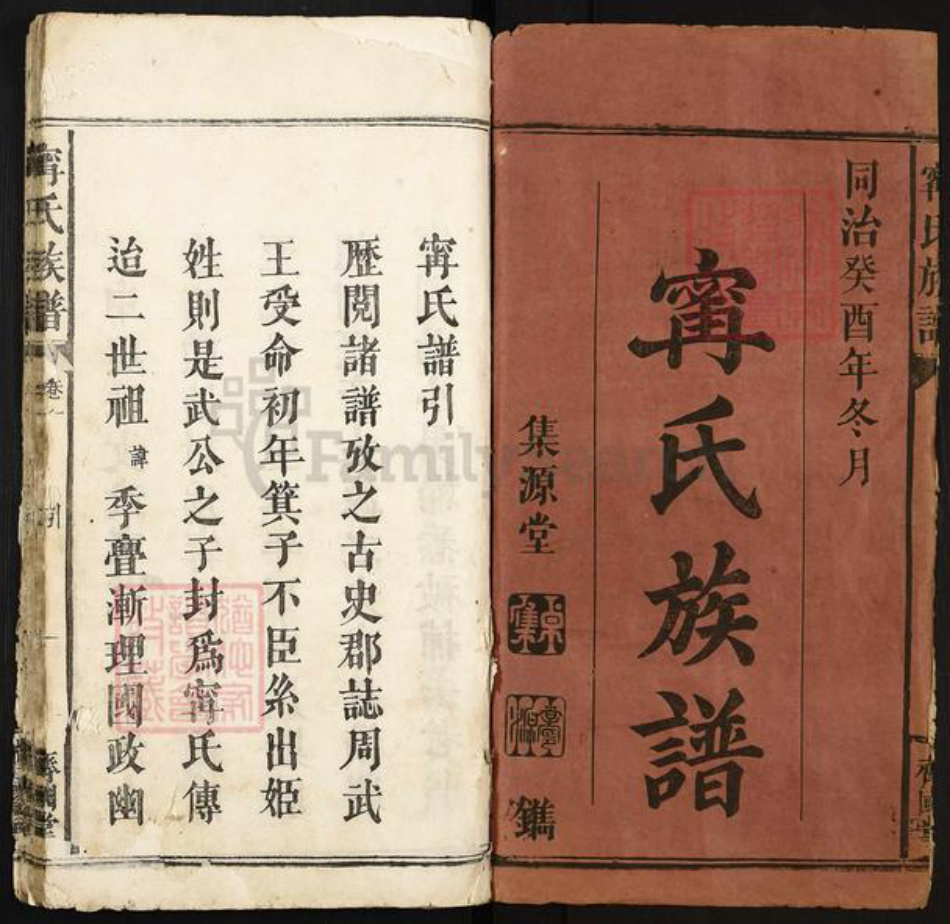 同治癸酉年冬月
甯氏族譜
集源堂
鐫
甯氏譜引
歷閲諸譜攷之古史郡誌周武
王受命初年箕子不臣糸出姬
姓則是武公之子封爲甯氏傳
迨二世祖諱季亹漸理國政幽
甯氏族譜
卷
引